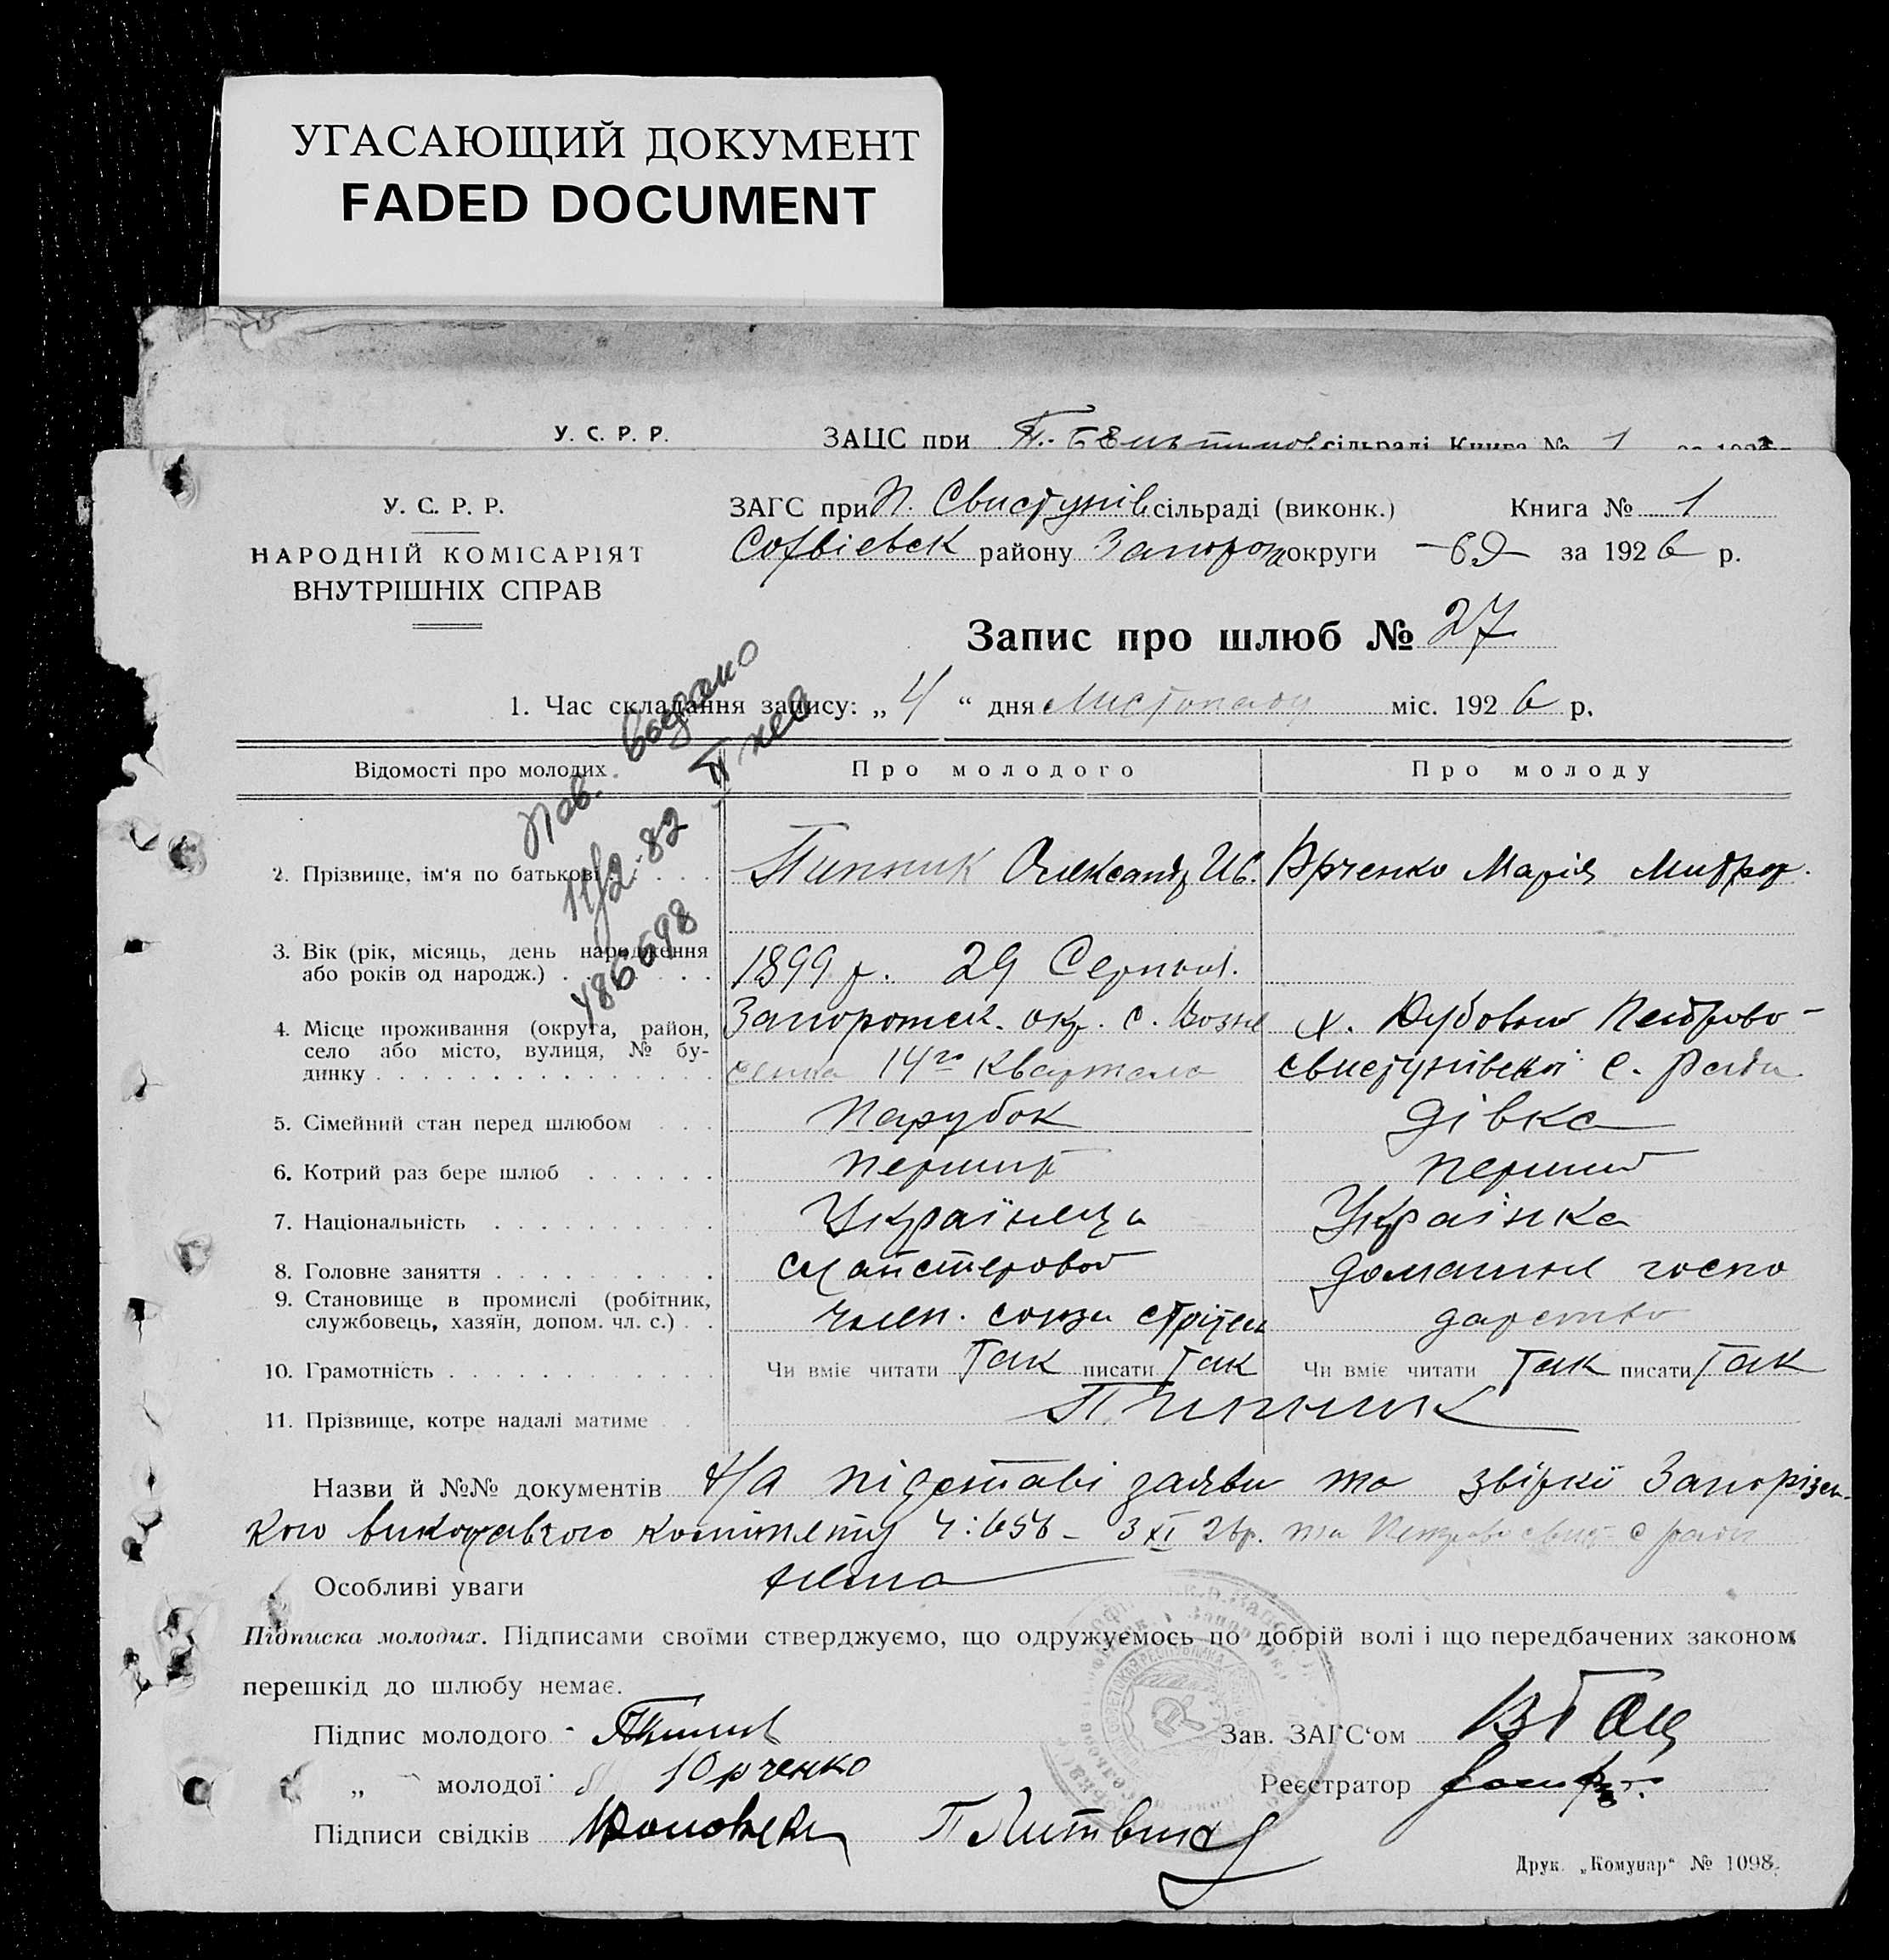 УГАСАЮЩИЙ ДОКУМЕНТ
FADED DOCUMENT
У. С. Р. Р. ЗАЦС при сільраді Книга № 1
У. С. Р. Р.
НАРОДНІЙ КОМІСАРІЯТ
ВНУТРІШНІХ СПРАВ
ЗАГС при П. Свистунів. сільраді (виконк.) Книга № 1
Софвіевск району Запорож округи за 1926 р.
Запис про шлюб № 27
1. Час складання запису: „ 4 “ дня Листопаду міс. 1926 р.
Пов. выдано
11/2-82
Відомості про молодих. Про молодого Про молоду
2. Прізвище, ім‘я по батькові Пинчик Олександр Ив. Юрченко Марія Митроф.
3. Вік (рік, місяць, день народження
або років од народж.) 1899 р. 29 Серпня.
4. Місце проживання (округа, район,
село або місто, вулиця, № бу-
динку
Запорожск. окр. с. Возне
сенка 14го квартала
х. Дубовий Петрово-
свистунівської с. Ради
5. Сімейний стан перед шлюбом Парубок дівка
6. Котрий раз бере шлюб перший перший
7. Національність Українець Українка
8. Головне заняття домашнє госпо
9. Становище в промислі (робітник,
службовець, хазяїн, допом. чл. с.) член. союзу дарство
10. Грамотність Чи вміє читати Так писати Так Чи вміє читати Так писати Так
11. Прізвище, котре надалі матиме Пинчик
Назви й №№ документів На підставі заяви та звірки Запорізсь-
кого виконавчого комітету 3 XI 26р. та
Особливі уваги нема
Підписка молодих. Підписами своїми стверджуємо, що одружуємось по добрій волі і що передбачених законом
перешкід до шлюбу немає.
Підпис молодого Зав. ЗАГС‘ом
„ молодої Юрченко Реєстратор
Підписи свідків П Литвин
Друк. „Комунар“ № 1098.